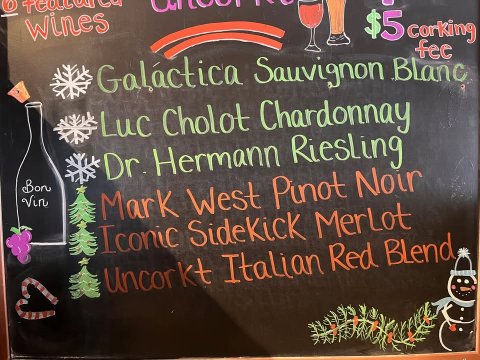 6 featured
wines
uncorkt
$5 corking
fee
Galáctica Sauvignon Blanc
Luc Cholot Chardonnay
Dr. Hermann Riesling
Bon
Vin
Mark West Pinot Noir
Iconic Sidekick Merlot
Uncorkt Italian Red Blend